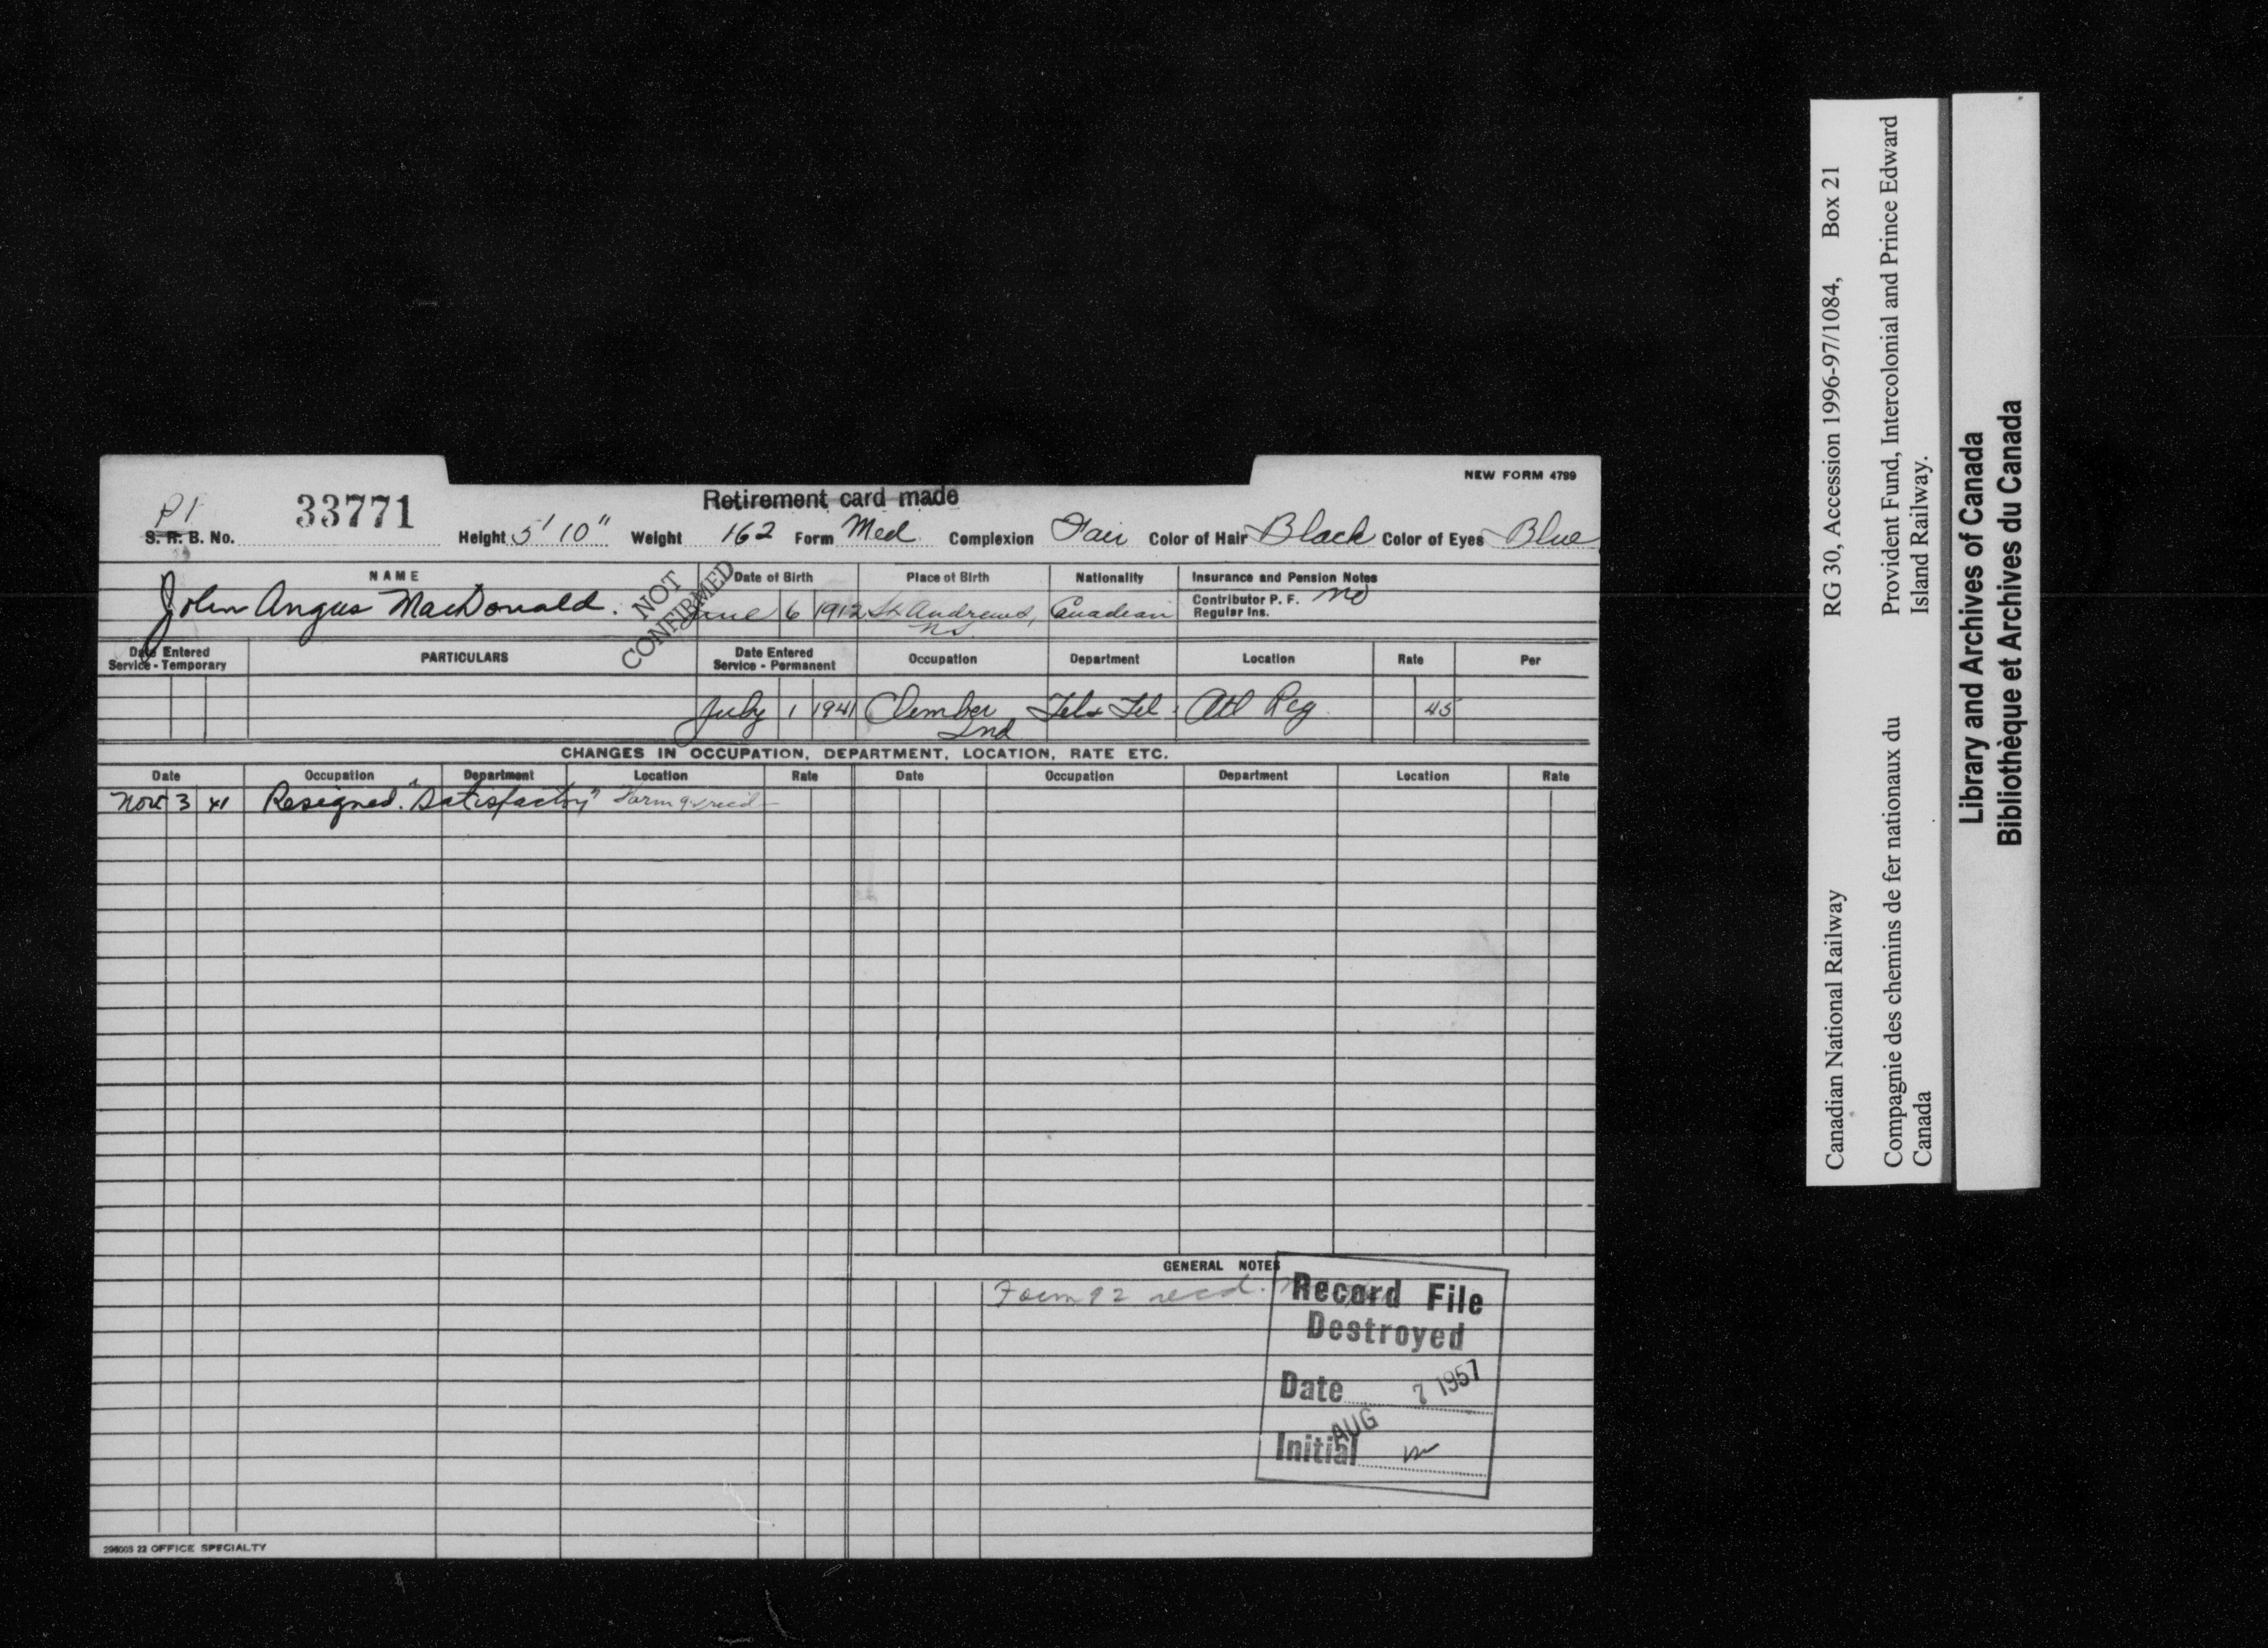 NEW FORM 4799
Retirement card made
P1
S. R. B. No. 33771 Height 5' 10" Weight 162 Form Med Complexion Fair Color of Hair Black Color of Eyes Blue
NAME Date of Birth Place of Birth Nationality Insurance and Pension Notes
John Angus MacDonald. NOT CONFIRMED June 6 1912 St. Andrews, N.S. Canadian Contributor P. F. no
Regular Ins.
Date Entered Service - Temporary PARTICULARS Date Entered Service - Permanent Occupation Department Location Rate Per
July 1 1941 Climber Tel & Tel. Atl Reg. 45
CHANGES IN OCCUPATION, DEPARTMENT, LOCATION, RATE ETC.
Date Occupation Department Location Rate Date Occupation Department Location Rate
Nov 3 41 Resigned. "Satisfactory" Form 92 recd
GENERAL NOTES
Form 92 recd.
Record File
Destroyed
Date AUG 7 1957
Initial
296003 22 OFFICE SPECIALTY
Canadian National Railway RG 30, Accession 1996-97/1084, Box 21
Compagnie des chemins de fer nationaux du Provident Fund, Intercolonial and Prince Edward
Canada Island Railway.
Library and Archives of Canada
Bibliothèque et Archives du Canada